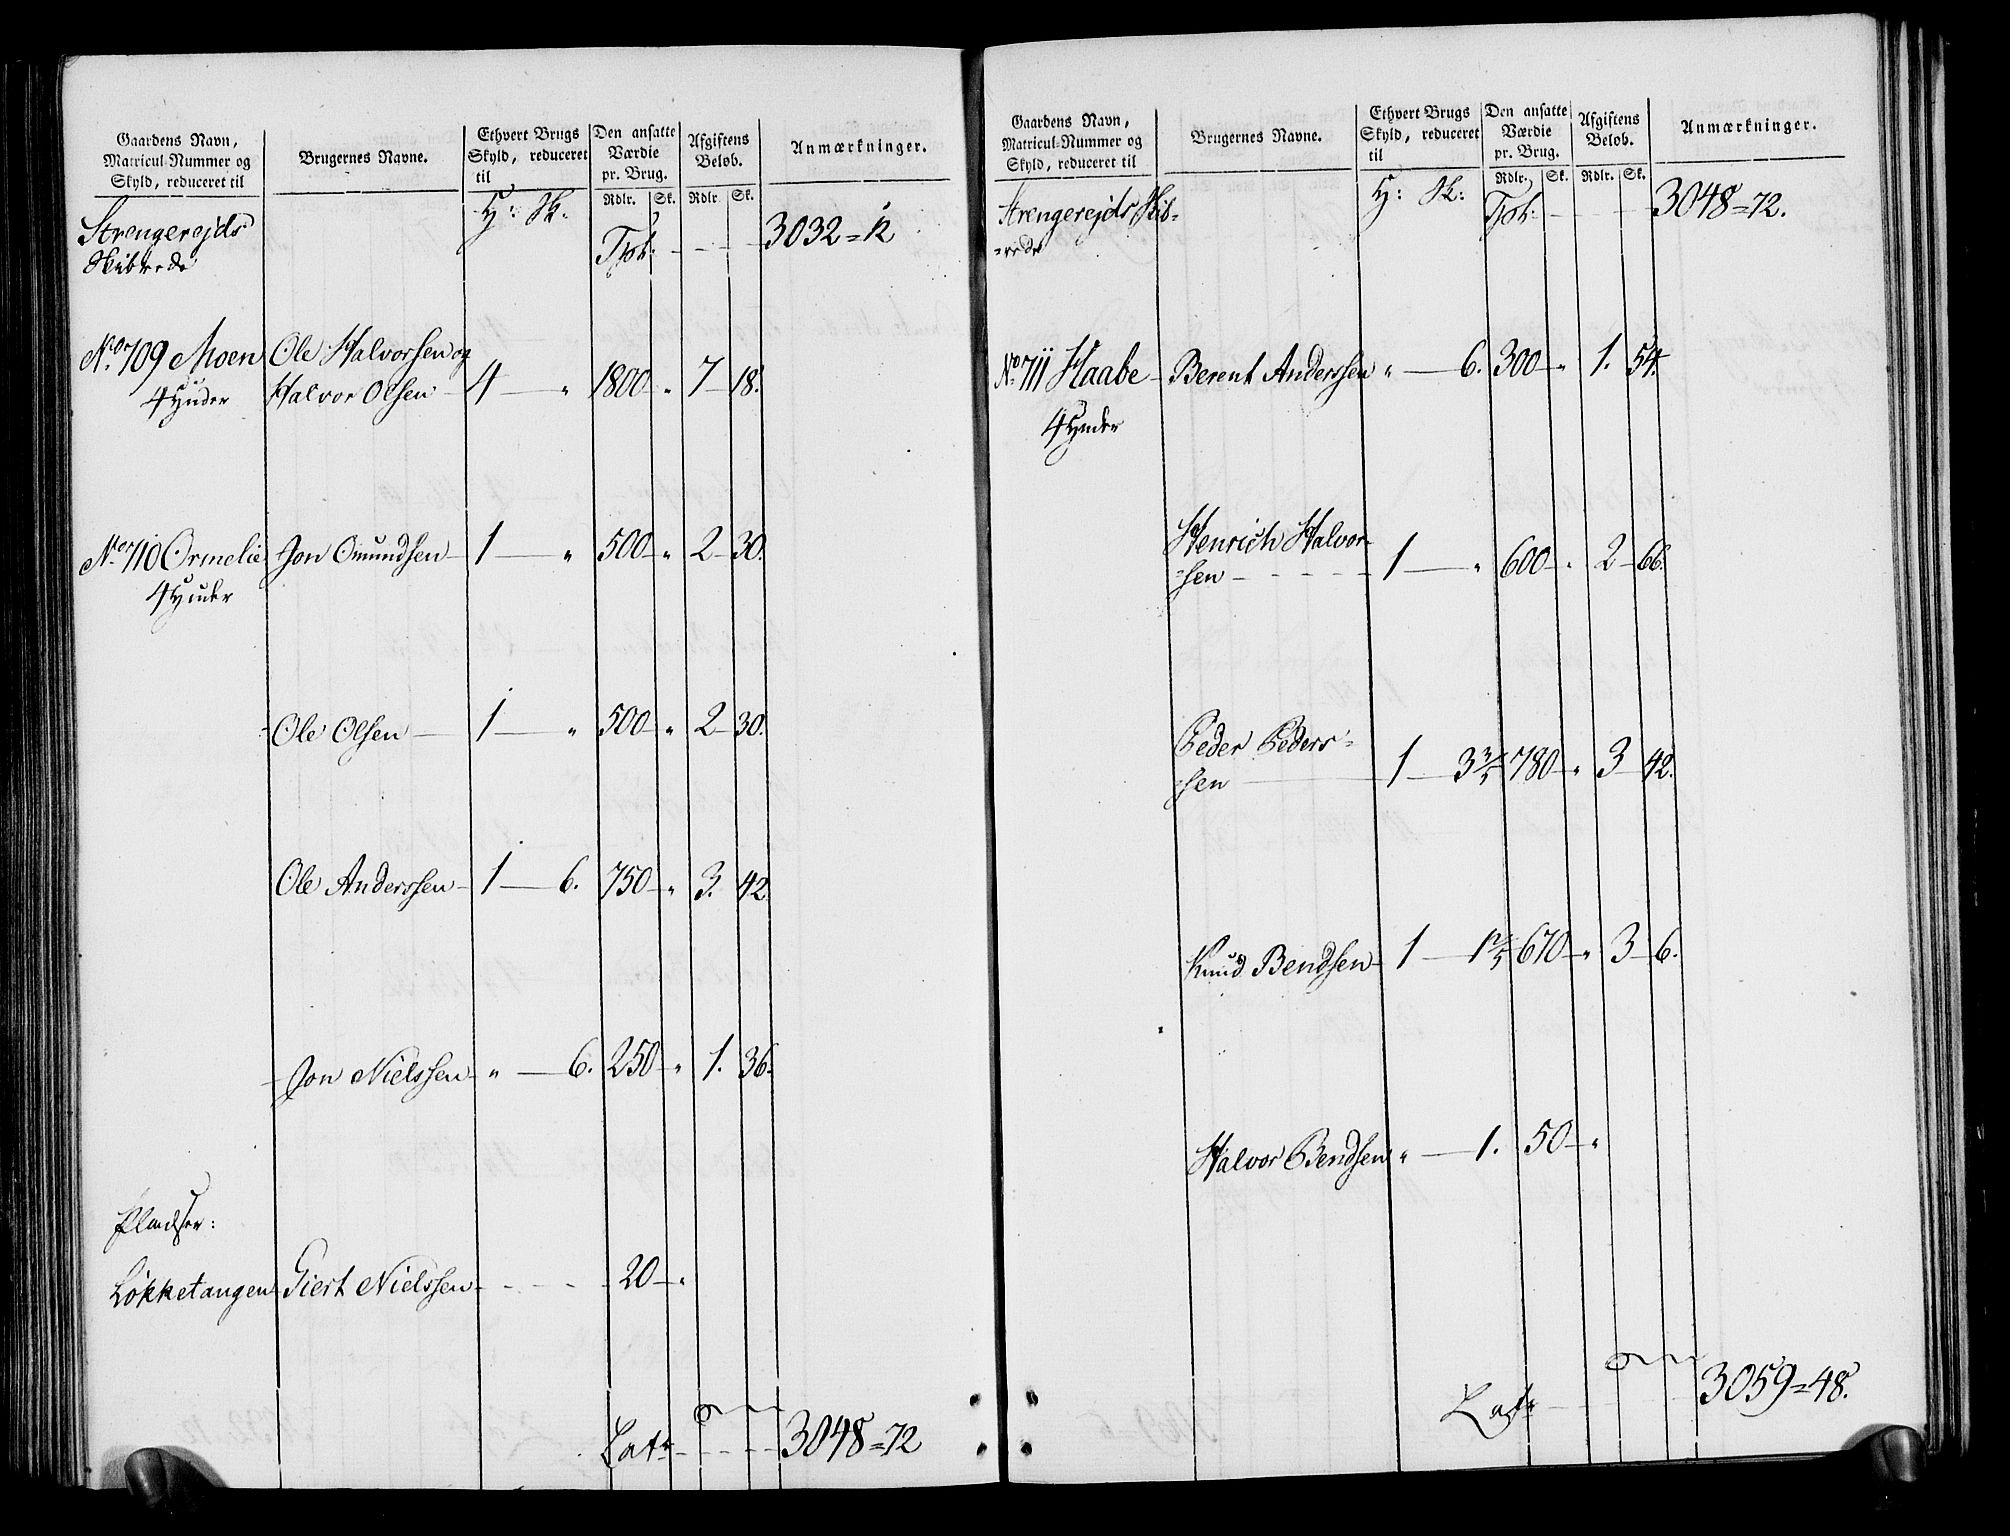 Gaardens Navn, Matricul-Nummer og Skyld, reduceret til | Brugernes Navne. | Ethvert Brugs Skyld, reduceret til | Den ansatte Værdie pr. Brug. | Afgiftens Beløb. | Anmærkninger.
Rdlr. Sk. Rdlr Sk.
Strengerejds H: Sk.
Skibrede Tpt: 3032=12
No. 709 Moen Ole Halvorsen og
4 Huder Halvor Olsen 4 — „ 1800 „ 7 18.
No. 710 Ormelie Jon Omundsen 1 — „ 500 „ 2 30.
4 Huder
Ole Olsen 1 — „ 500 „ 2 30.
Ole Anderssen 1 — 6. 750 „ 3. 42
Jon Nielssen „ — 6. 250 „ 1. 36.
Pladser:
Løkketangen Giert Nielssen 20 „
Latr 3048=72
Gaardens Navn, Matricul-Nummer og Skyld, reduceret til | Brugernes Navne. | Ethvert Brugs Skyld, reduceret til | Den ansatte Værdie pr. Brug. | Afgiftens Beløb. | Anmærkninger.
Rdlr. Sk. Rdlr. Sk.
Strengerejds Skib= H: Sk: Tpt: 3048=72.
=rede
No. 711 Haabe Berent Anderssen „ — 6. 300 „ 1. 54.
4 Huder
Henrich Halvor=
=sen 1 — „ 600 „ 2 66.
Peder Peders=
=sen 1 — 3 3/5 780 „ 3 42.
Knud Bendsen 1 — 1 2/5 670 „ 3 6.
Halvor Bendsen „ — 1. 50 „
Latr 3059=48.